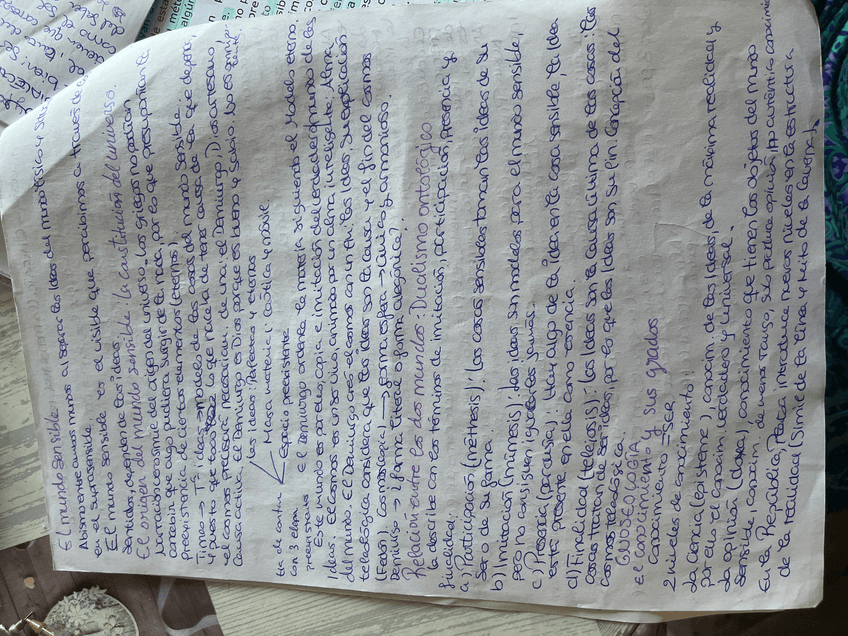 El mundo sensible:
Abismo entre ambos mundos al separar las Ideas del mundo físico y
en el suprasensible.
El mundo sensible es el visible que percibimos a través de los
sentidos, depende de las ideas.
El origen del mundo sensible: la constitución del universo.
Narración verosímil del origen del universo. Los griegos no podían
concebir que algo pudiera surgir de la nada, por es que presuponían la
Preexistencia de ciertos elementos (eternos)
Timeo → Tª ideas → modelo de las cosas del mundo sensible.
Y puesto que todo lo que nacía ha de tener causa de la que depende,
el cosmos precisará también de una: el Demiurgo, Dios artesano,
causa activa. El Demiurgo es Dios porque es bueno y sabio. No es omnipo-
tente.
Las Ideas: Perfectas y eternas
Masa material: caótica y móvil
Espacio preexistente
ha de contar
con 3 elem.
preexistentes
El Demiurgo ordena la materia siguiendo el Modelo eterno.
Este mundo es por ello, copia e imitación del verdadero mundo de las
Ideas. El Cosmos es un ser vivo, animado por un alma inteligente: Alma
del mundo. El Demiurgo creó el cosmos con vista en las ideas, su explicación
teleológica considera que las ideas son la causa y el fin del cosmos
(Fedón). Cosmos (logía) → forma esfera → único y armonioso.
Demiurgo → ¿forma literal o forma alegórica?
Relación entre los dos mundos: Dualismo ontológico
la describe con los términos de imitación, participación, presencia y
finalidad:
a) Participación (méthesis): las cosas sensibles toman las ideas de su
ser o de su forma.
b) Imitación (mímesis): las ideas son modelos para el mundo sensible,
pero no consiguen igualarlas jamás.
c) Presencia (parousia): Hay algo de la idea en la cosa sensible, la idea
está presente en ella como esencia.
d) Finalidad (telejosis): las Ideas son la causa última de las cosas: las
cosas tratan de ser ideas, por es que las Ideas son su fin. Concepción del
cosmos teleológica.
GNOSEOLOGÍA
El conocimiento y sus grados
Conocimiento = Ser
2 niveles de conocimiento:
La ciencia (episteme), conocim. de las ideas, de la máxima realidad y
por ello el conocim. verdadero y universal.
La opinión (doxa), conocimiento que tienen los objetos del mundo
sensible, conocim. de menos rango, solo produce opinión, no auténtico conocim.
En la República, Platón introduce nuevos niveles en la estructura
de la realidad (Símil de la línea y mito de la caverna).